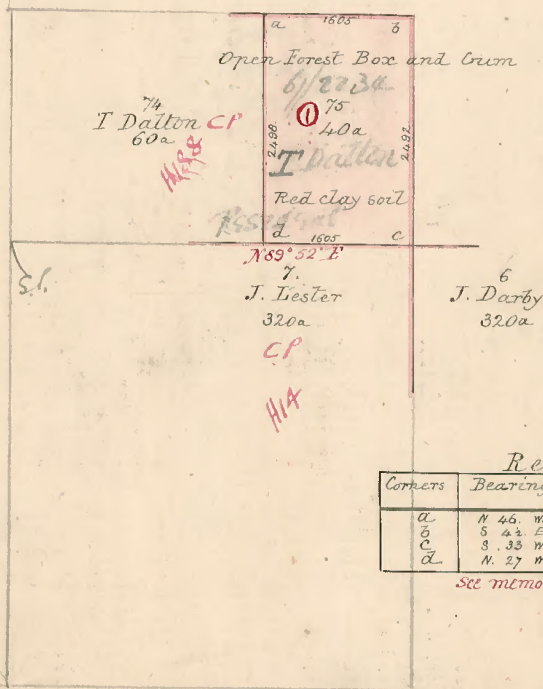 a 1605 b
Open Forest Box and Gum
61/2234
74
T Dalton CP
60a
H188
① 75
40a
2498
2492
T Dalton
Red clay soil
d 1605 c
N89°52'E
S.P.
7.
J. Lester
320a
CP
H14
6
J. Darby
320a
Re
Corners Bearing
a N 46. W
b S 42. E
c S. 33 W
d N. 27 W
See memo